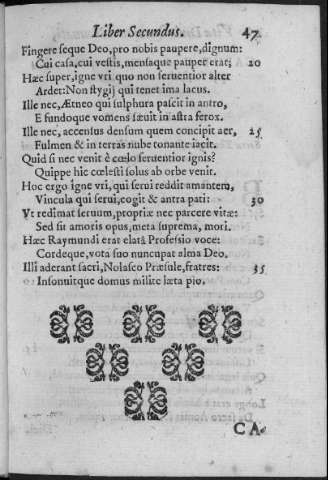 Liber Secundus. 47
Fingere seque Deo, pro nobis paupere, dignum:
Cui casa, cui vestis, mensaque pauper erat; 20
Hæc super, igne vri quo non feruentior alter
Ardet: Non stygij qui tenet ima lacus.
Ille nec, Ætneo qui sulphura pascit in antro,
E fundoque vomens sæuit in astra ferox.
Ille nec, accensus densum quem concipit aer, 25
Fulmen & in terras nube tonante iacit.
Quid si nec venit è cœlo feruentior ignis?
Quippe hic cœlesti solus ab orbe venit.
Hoc ergo igne vri, qui serui reddit amantem,
Vincula qui serui, cogit & antra pati: 30
Vt redimat seruum, propriæ nec parcere vitæ:
Sed sit amoris opus, meta suprema, mori.
Hæc Raymundi erat clarâ Professio voce:
Cordeque, vota suo nuncupat alma Deo.
Illi aderant sacri, Nolasco Præsule, fratres: 35
Insonuitque domus milite læta pio.
CA-